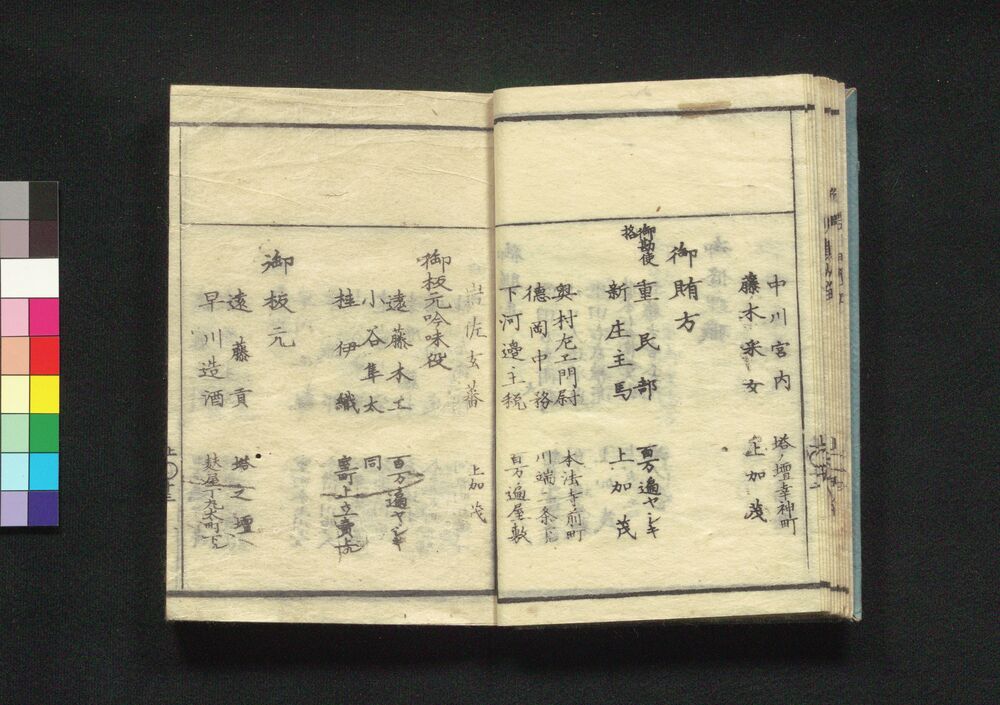 中川宮内 塔ノ壇幸神町
藤木采女 上加茂
御賄方
御勘使格
重民部 百万遍ヤシキ
新庄主馬 上加茂
奥村左エ門尉 本法寺前町
徳岡中務 川端二条下ル
下河邉主税 百万遍屋敷
岩佐玄蕃 上加茂
御板元吟味役
遠藤木工 百万遍ヤシキ
小谷隼太 同
桂伊織 寺町上立賣
御板元
遠藤貢 塔之壇
早川造酒 麸屋丁丸太町下ル